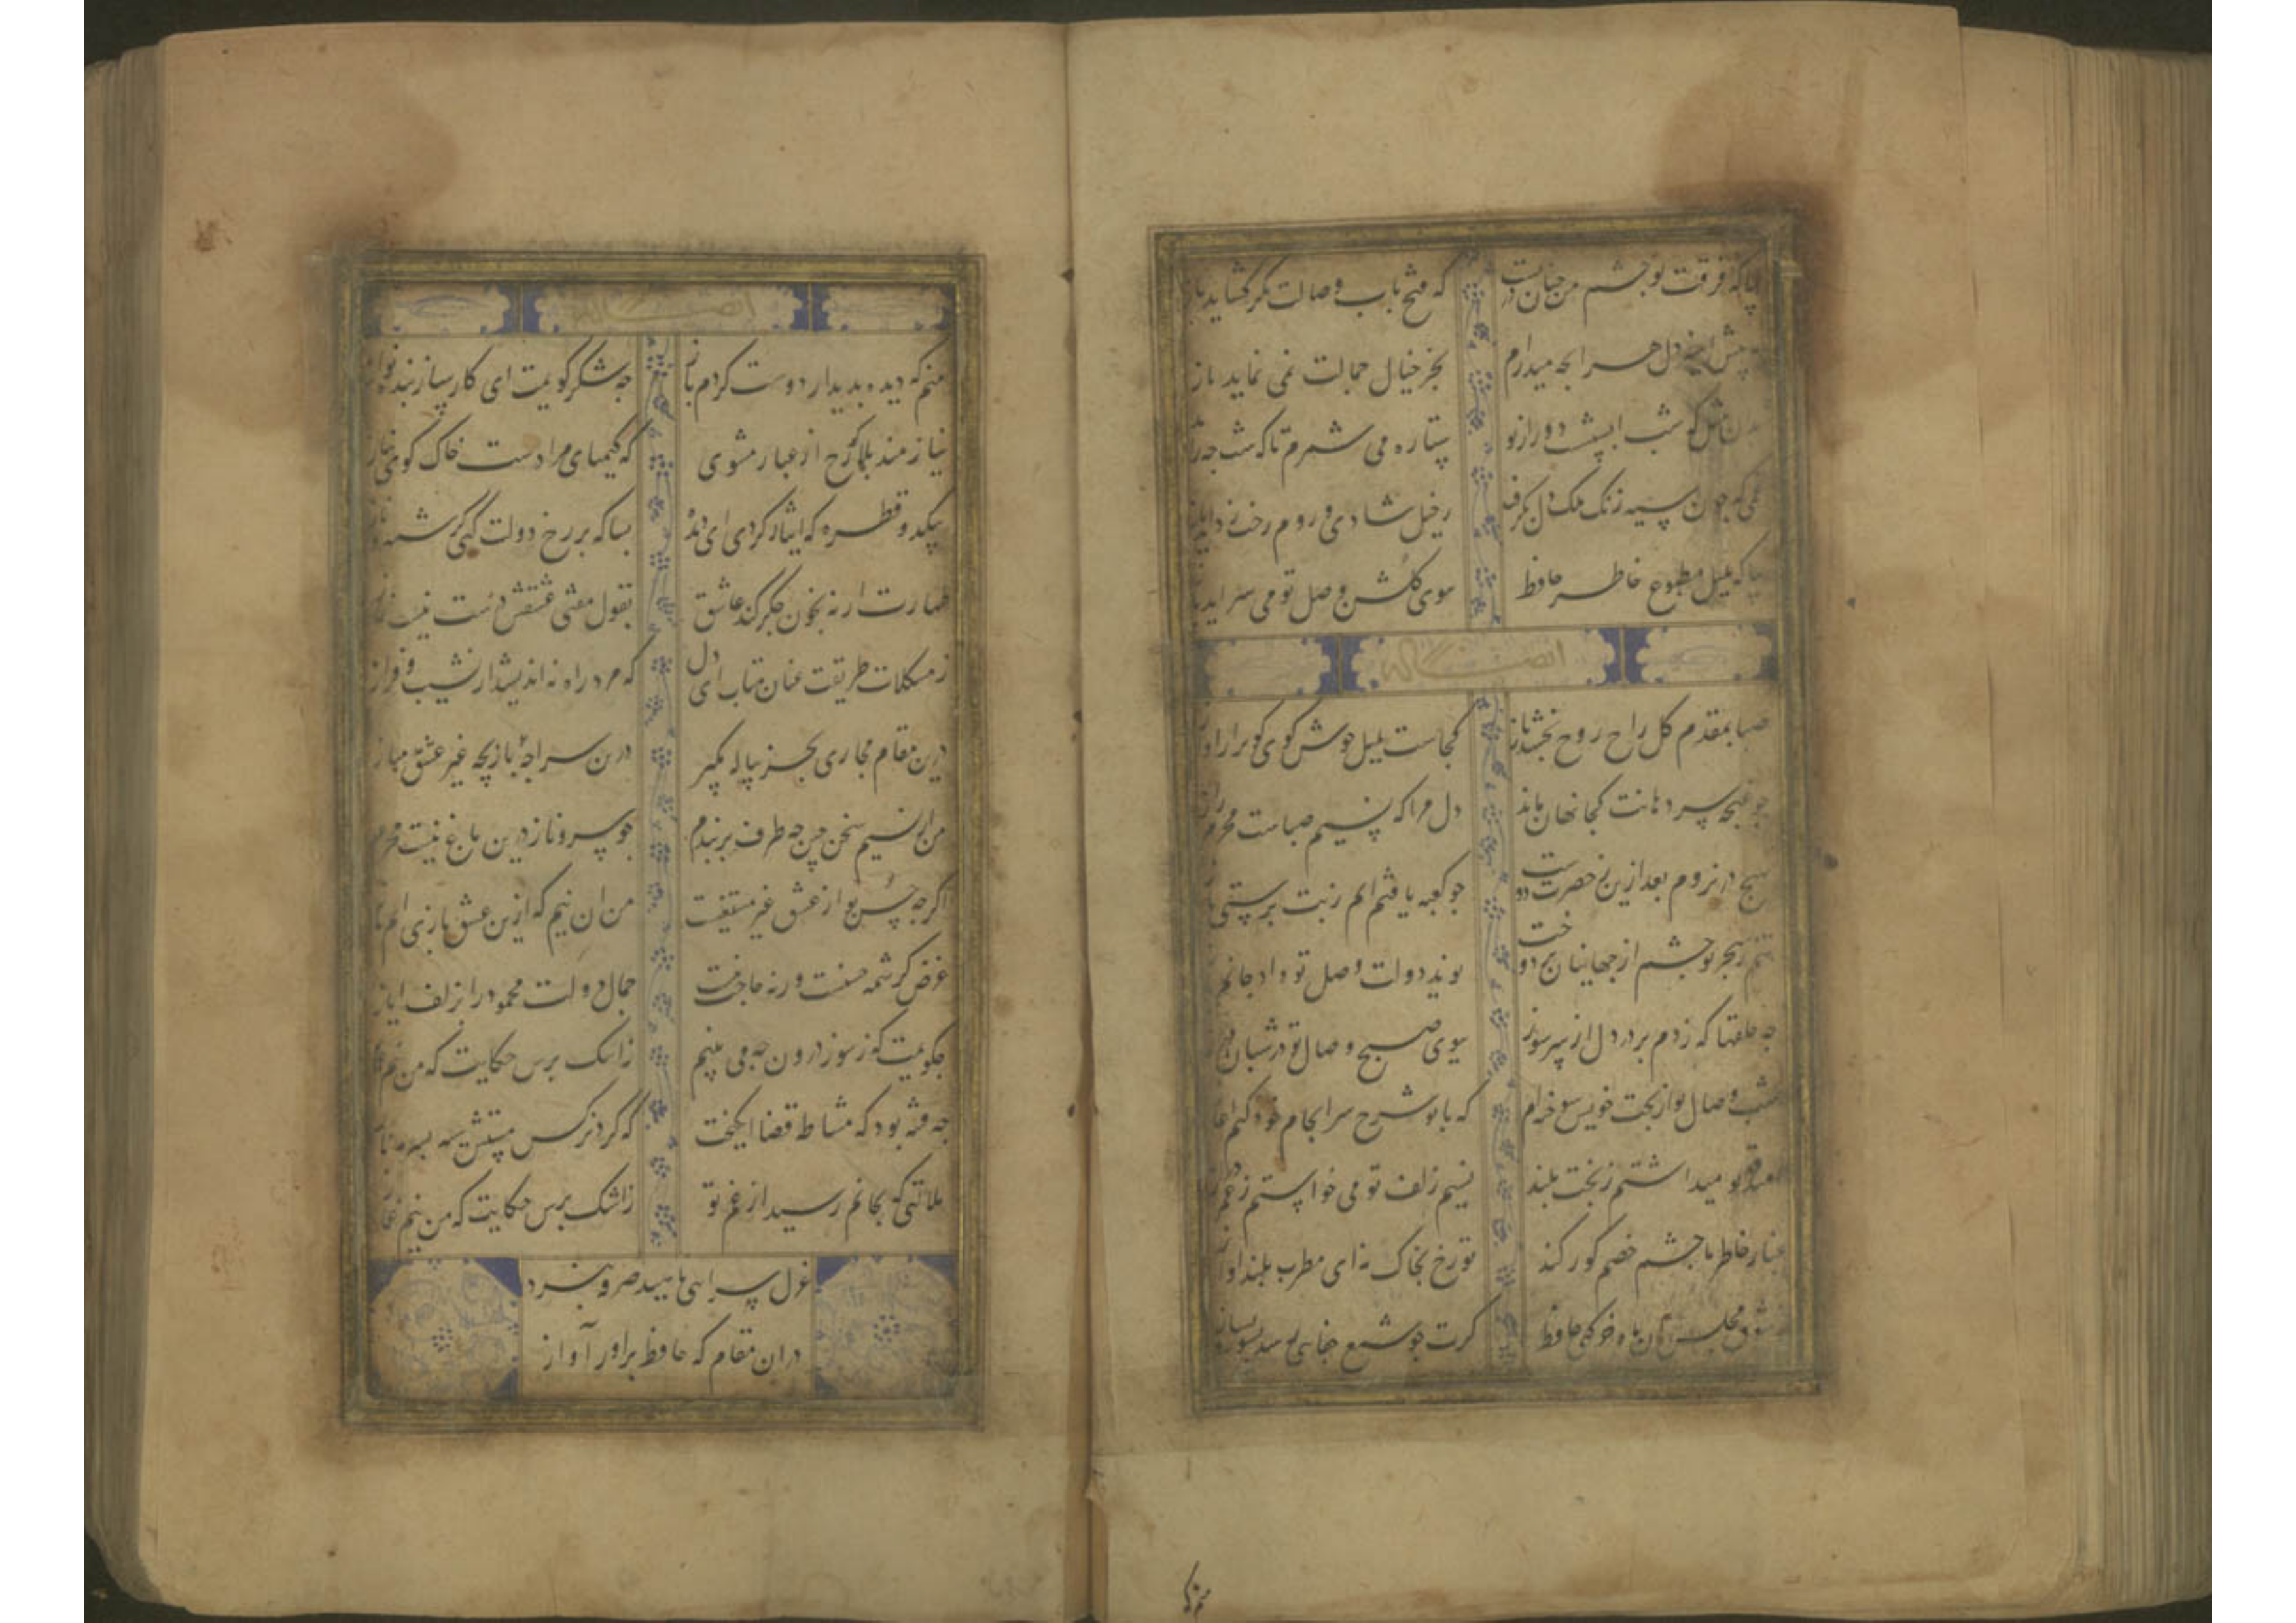 که فرقت تو چشم من چنان در بست که فتح باب وصالت مگر گشاید باز
دل هر انچه میدارم بجز خیال جمالت نمی نماید باز
شب ابستنست دور از تو ستاره می شمرم تا که شب چه
غمی که چون سپه زنک ملک دل بگرفت زخیل شادی روم رخت زداید
بیا که بلبل مطبوع خاطر حافظ بوی گلشن وصل تو می سراید
ایضا له
صبا بمقدم گل راح روح بخشد باز کجاست بلبل خوش گوی گو برار اواز
چو غنچه سر دهانت کجا نهان ماند دل مرا که نسیم صباست محرم راز
بهیچ در نروم بعد ازین ز حضرت دوست چو کعبه یافتم ایم زبت پرستی
تنم ز هجر تو چشم از جهانیان بر دوخت نوید دولت وصل تو داد جانم
چه حلقها که زدم بر در دل از سر سوز ببوی صبح وصال تو در شبان
شب وصال تو از بخت خویش خواهم که با تو شرح سرانجام خود کنم اغاز
امید قد تو میداشتم ز بخت بلند نسیم زلف تو می خواستم ز عمر
غبار خاطر ما چشم خصم کور کند تو رخ بخاک نه ای مطرب بلند اواز
ز شوق مجلس آن ماه خرگهی حافظ گرت چو شمع جفایی رسد بسوز بساز
منم که
ایضا له
منم که دیده بدیدار دوست کردم باز چه شکر گویمت ای کارساز بنده نواز
نیازمند بلا گو رخ از غبار مشوی که کیمیای مرادست خاک کوی نیاز
بیکدو قطره که ایثار کردی ای دیده بسا که بر رخ دولت کنی کرشمه ناز
طهارت ار نه بخون جگر کند عاشق بقول مفتی عشقش درست نیست نماز
ز مشکلات طریقت عنان متاب ای دل که مرد راه نه اندیشد از نشیب و فراز
درین مقام مجازی بجز پیاله مگیر درین سراچه بازیچه غیر عشق مباز
من از نسیم سخن چین چه طرف بربندم چو سرو ناز درین باغ نیست محرم
اگرچه حسن تو از عشق غیر مستغنیست من ان نیم که ازین عشق بازی ایم باز
غرض کرشمه حسنست ورنه حاجت نیست جمال دولت محمود را بزلف ایاز
چگویمت که ز سوز درون چه می بینم ز اشک پرس حکایت که من نیم
چه فتنه بود که مشاطه قضا انگیخت که کرد نرگس مستش سیه بسرمه ناز
ملامتی که بجانم رسید از غم تو ز اشک پرس حکایت که من نیم غماز
غزل سرایی ناهید صرفه نبرد
دران مقام که حافظ براورد آواز